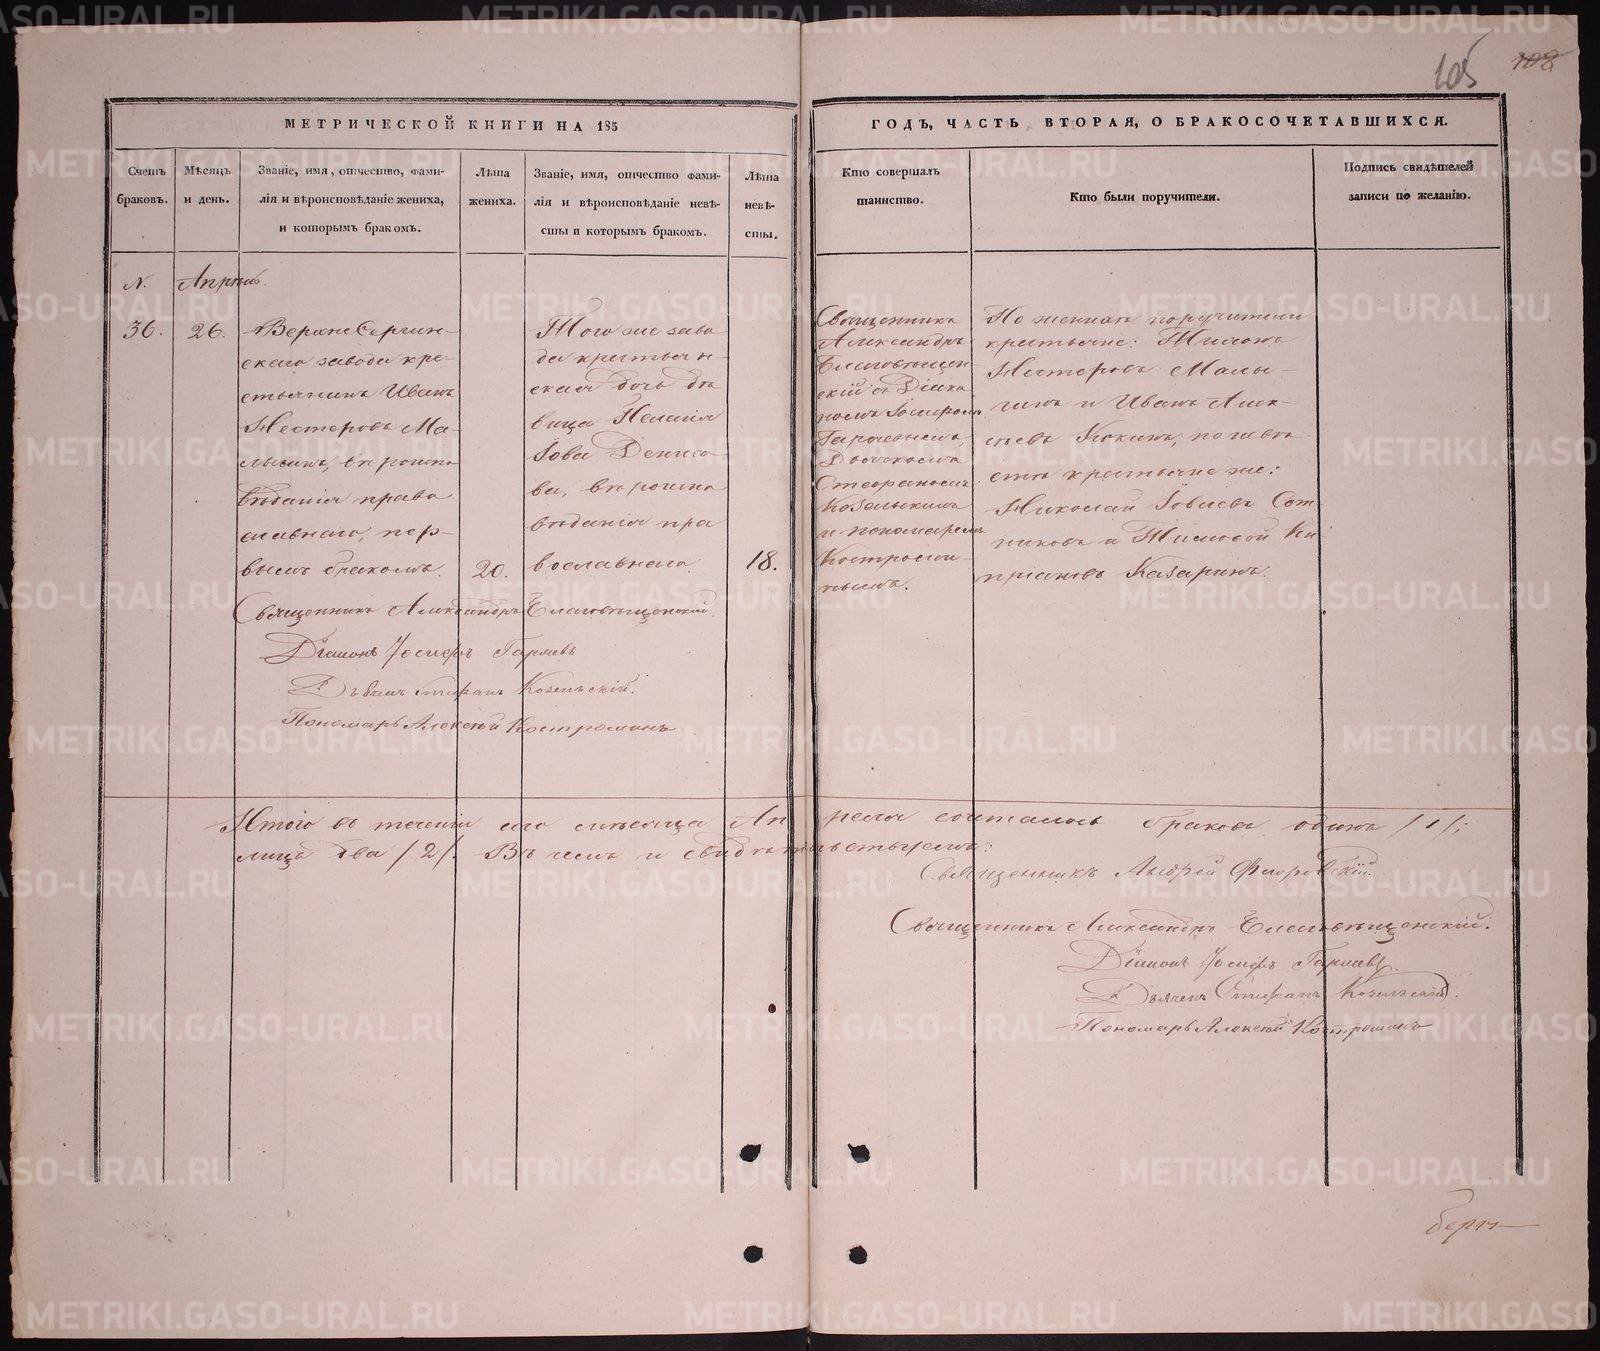 105 108
МЕТРИЧЕСКОЙ КНИГИ НА 185
ГОДЪ, ЧАСТЬ ВТОРАЯ, О БРАКОСОЧЕТАВШИХСЯ.
Счетъ браковъ.
Мѣсяцъ и день.
Званіе, имя, отчество, фами-
лія и вѣроисповѣданіе жениха,
и которымъ бракомъ.
Лѣта
жениха.
Званіе, имя, отчество фами-
лія и вѣроисповѣданіе невѣ-
сты и которымъ бракомъ.
Лѣта
невѣ-
сты.
Кто совершалъ
таинство.
Кто были поручители.
Подпись свидѣтелей
записи по желанію.
N.
Апрѣль.
36.
26.
Верхне Сергин-
скаго завода кре-
стьянинъ Иванъ
Нестеровъ Ма-
лыгинъ, вѣроиспо
вѣданія право
славнаго, пер-
вымъ бракомъ.
20.
Того же заво
да крестьян-
ская дочь дѣ
вица Пелагія
Іова Дениса
ва, вѣроиспо
вѣданія пра
вославнаго.
18.
Священникъ
Александръ
Благовѣщен
скій съ Діако
номъ Іосифомъ
Дьячкомъ
Стефаномъ
Козельскимъ
и пономаремъ
Костроми-
нымъ.
По женихѣ поручители
крестьяне:
Нестеровъ Малы-
гинъ и Иванъ
по невѣ
стѣ крестьяне же:
Николай Іовлевъ Сот
никовъ и Тимофей Ки
пріановъ Казаринъ.
Священникъ Александръ Благовѣщенскій.
Діаконъ Іосифъ
Дьячекъ Стефанъ Козельскій.
Пономарь Алексѣй Костроминъ
Итого въ теченіи сего мѣсяца Апрѣля состоялось браковъ одинъ /1/;
лицъ два /2/. Въ чемъ и свидѣтельствуемъ:
Священникъ Андрей Флоровскій.
Священникъ Александръ Благовѣщенскій.
Діаконъ Іосифъ
Дьячекъ Стефанъ Козельскій.
Пономарь Алексѣй Костроминъ
METRIKI.GASO-URAL.RU